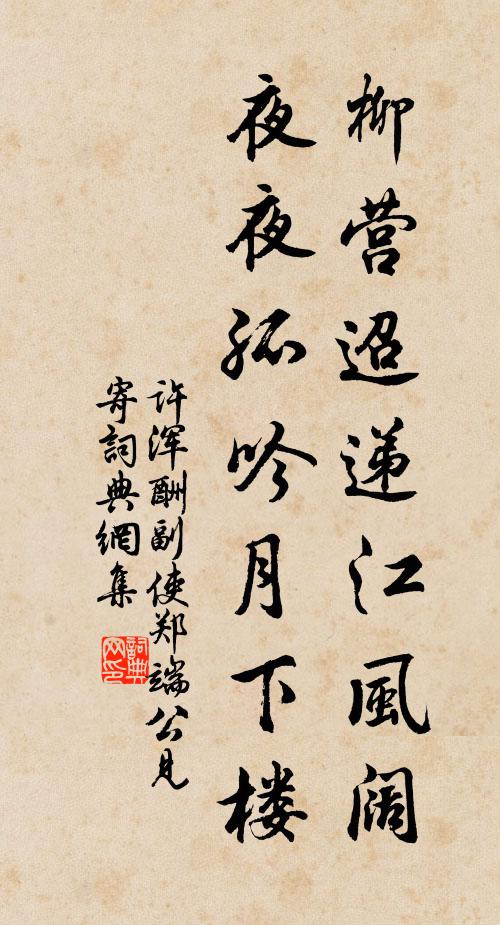 柳营迢递江風阔
夜夜孤吟月下楼
许浑酬副使郑端公見
寄詞典網集
詞典
网印